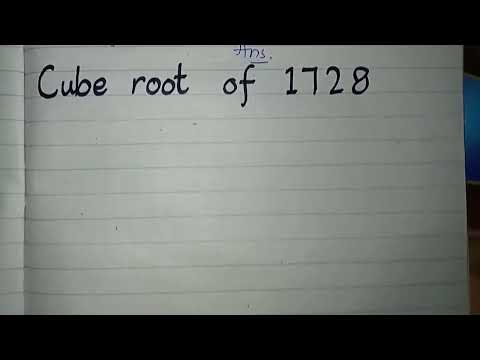 Ans.
Cube root of 1728